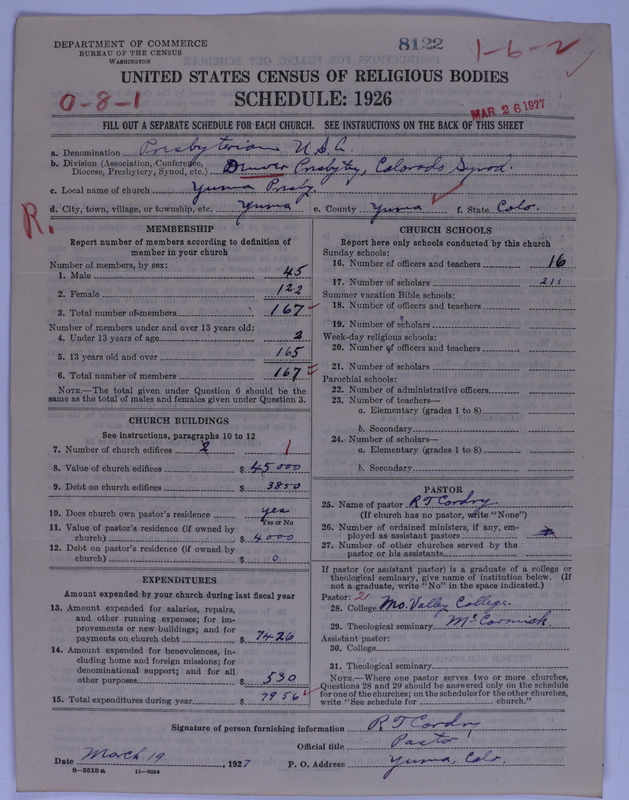 DEPARTMENT OF COMMERCE
BUREAU OF THE CENSUS
WASHINGTON
8122
1-6-2
UNITED STATES CENSUS OF RELIGIOUS BODIES
SCHEDULE: 1926
0-8-1
MAR 26 1927
FILL OUT A SEPARATE SCHEDULE FOR EACH CHURCH. SEE INSTRUCTIONS ON THE BACK OF THIS SHEET
a. Denomination Presbyterian U.S.A.
b. Division (Association, Conference, Diocese, Presbytery, Synod, etc.) Denver Presbytry, Colorado Synod.
c. Local name of church Yuma Presby.
d. City, town, village, or township, etc. Yuma e. County Yuma f. State Colo.
R.
MEMBERSHIP
Report number of members according to definition of
member in your church
Number of members, by sex:
1. Male 45
2. Female 122
3. Total number of members 167
Number of members under and over 13 years old:
4. Under 13 years of age 2
5. 13 years old and over 165
6. Total number of members 167
NOTE.—The total given under Question 6 should be the
same as the total of males and females given under Question 3.
CHURCH BUILDINGS
See instructions, paragraphs 10 to 12
7. Number of church edifices 2 1
8. Value of church edifices $45000
9. Debt on church edifices $3850
10. Does church own pastor's residence yes
Yes or No
11. Value of pastor's residence (if owned by
church) $4000
12. Debt on pastor's residence (if owned by
church) $0
EXPENDITURES
Amount expended by your church during last fiscal year
13. Amount expended for salaries, repairs,
and other running expenses; for im-
provements or new buildings; and for
payments on church debt $7426
14. Amount expended for benevolences, in-
cluding home and foreign missions; for
denominational support; and for all
other purposes $530
15. Total expenditures during year $7956
CHURCH SCHOOLS
Report here only schools conducted by this church
Sunday schools:
16. Number of officers and teachers 16
17. Number of scholars 211
Summer vacation Bible schools:
18. Number of officers and teachers
19. Number of scholars
Week-day religious schools:
20. Number of officers and teachers
21. Number of scholars
Parochial schools:
22. Number of administrative officers
23. Number of teachers—
a. Elementary (grades 1 to 8)
b. Secondary
24. Number of scholars—
a. Elementary (grades 1 to 8)
b. Secondary
PASTOR
25. Name of pastor R T Cordry
(If church has no pastor, write "None")
26. Number of ordained ministers, if any, em-
ployed as assistant pastors
27. Number of other churches served by the
pastor or his assistants
If pastor (or assistant pastor) is a graduate of a college or
theological seminary, give name of institution below. (If
not a graduate, write "No" in the space indicated.)
Pastor: 2
28. College Mo. Valley College.
29. Theological seminary McCormick
Assistant pastor:
30. College
31. Theological seminary
NOTE.—Where one pastor serves two or more churches,
Questions 28 and 29 should be answered only on the schedule
for one of the churches; on the schedules for the other churches,
write "See schedule for church."
Signature of person furnishing information R T Cordry
Official title Pastor
Date March 19, 1927 P. O. Address Yuma, Colo.
8—5518 a 11—9064